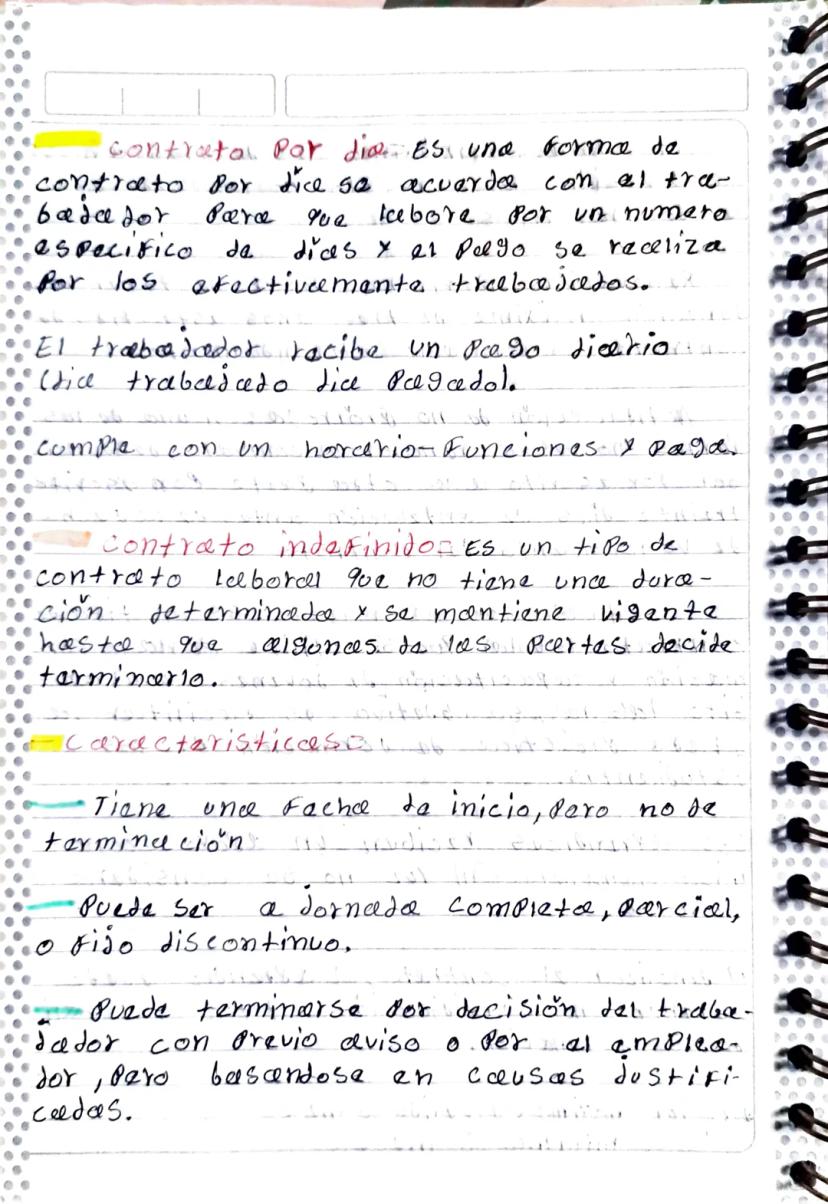 Contrato Por dia. Es una forma de
contrato Por dia se acuerda con el tra-
bajador Para que labore Por un numero
especifico de días y el Pago se realiza
Por los efectivamente trabajados.
El trabajador recibe un Pago diario
(dia trabajado dia Pagado).
cumple con un horario-Funciones y Paga.
Contrato indefinido= Es un tipo de
contrato laboral que no tiene una dura-
ción determinada y se mantiene vigente
hasta que algunas de las Partes decide
terminarlo.
Caracteristicas=
Tiene una Fecha de inicio, Pero no de
terminación
Puede ser a Jornada completa, Parcial,
o fijo discontinuo.
Puede terminarse Por decisión del traba-
jador con Previo aviso o Por el emplea-
dor, Pero basandose en causas Justifi-
cadas.